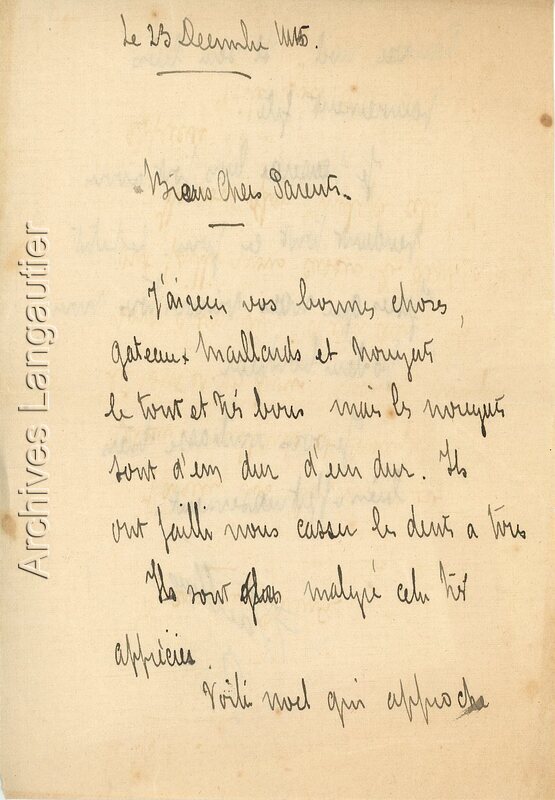 Le 23 Decembre 1915.
Biens Chers Parents.
J'ai reçu vos bonnes choses,
gateaux Maillards et Nougats
le tout et très bons mais les nougats
sont d'un dur d'un dur. Ils
ont failli nous casser les dents a tous
Ils sont malgré cela très
appréciés.
Voilà noel qui approche
Archives Langautier